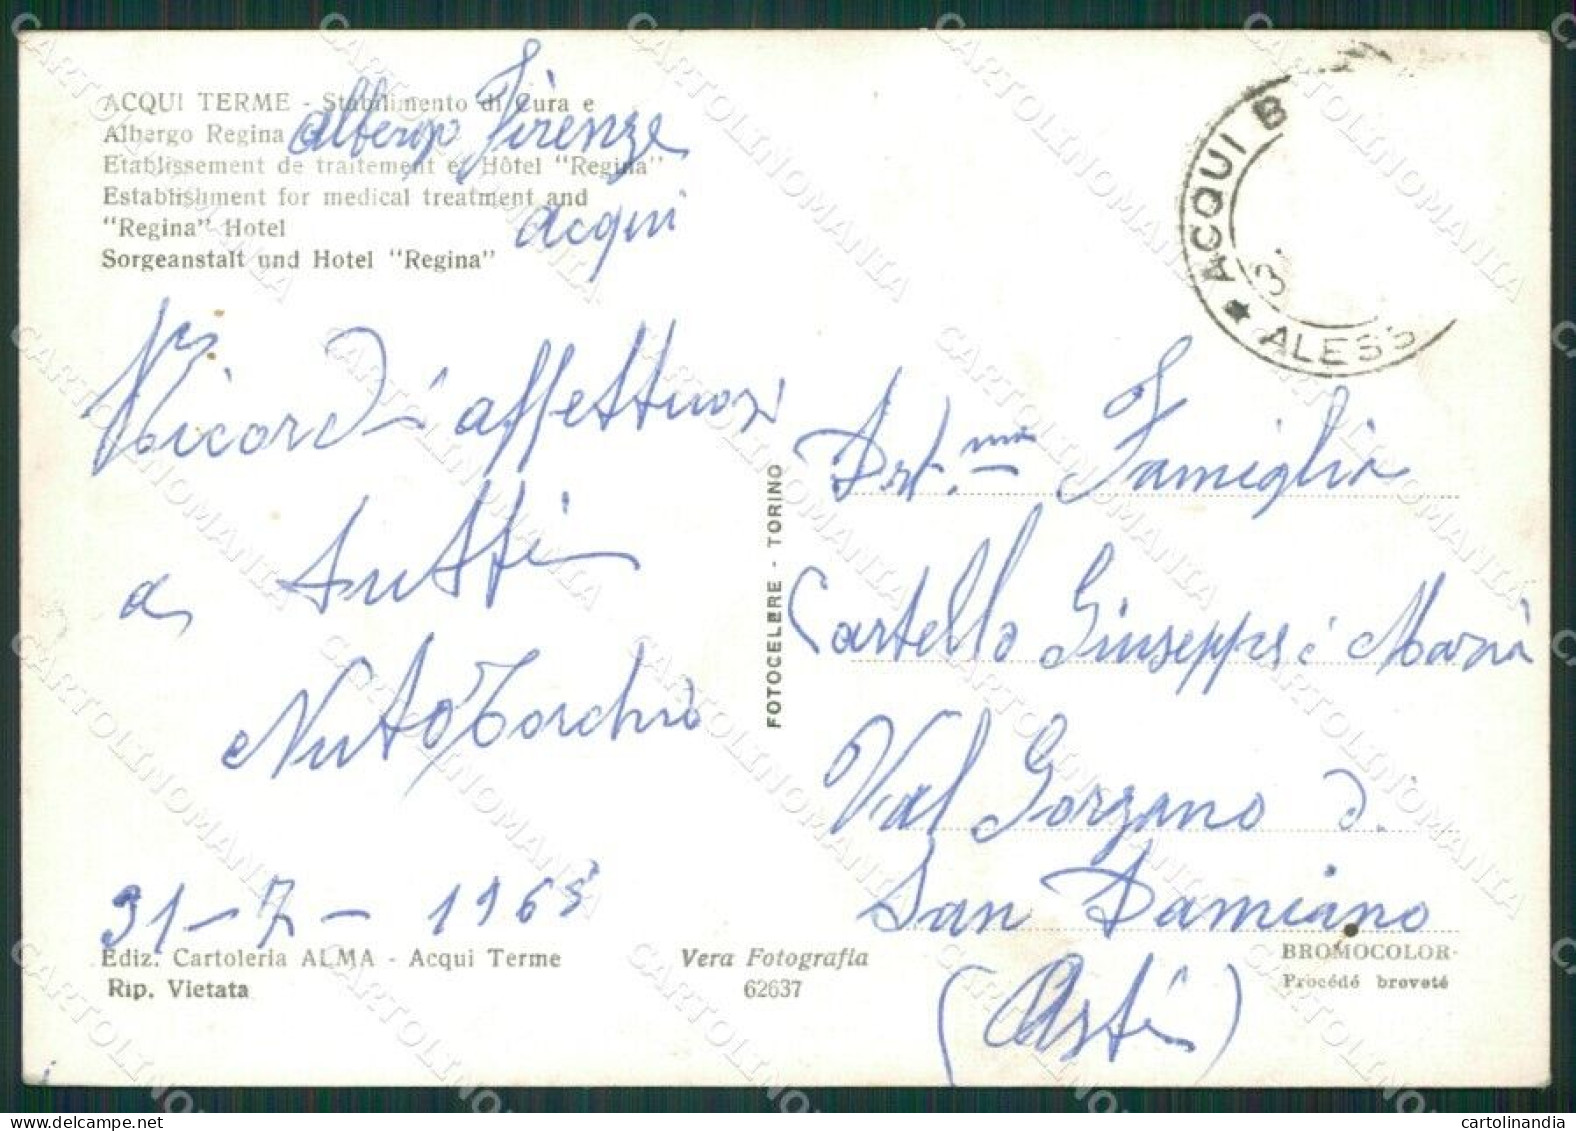 ACQUI TERME - Stabilimento di Cura e
Albergo Regina
Etablissement de traitement et Hôtel "Regina"
Establishment for medical treatment and
"Regina" Hotel
Sorgeanstalt und Hotel "Regina"
albergo Firenze
acqui
Ricordi affettuosi
a tutti
Nuto Torchio
31-7-1965
Ediz. Cartoleria ALMA - Acqui Terme
Rip. Vietata
Vera Fotografia
62637
FOTOCELERE - TORINO
ACQUI B
ALESS
Famiglia
Cartello Giuseppe e Maria
Val Gorzano di
San Damiano
(Asti)
BROMOCOLOR-
Procédé breveté
CARTOLINOMANIA
cartolinandia